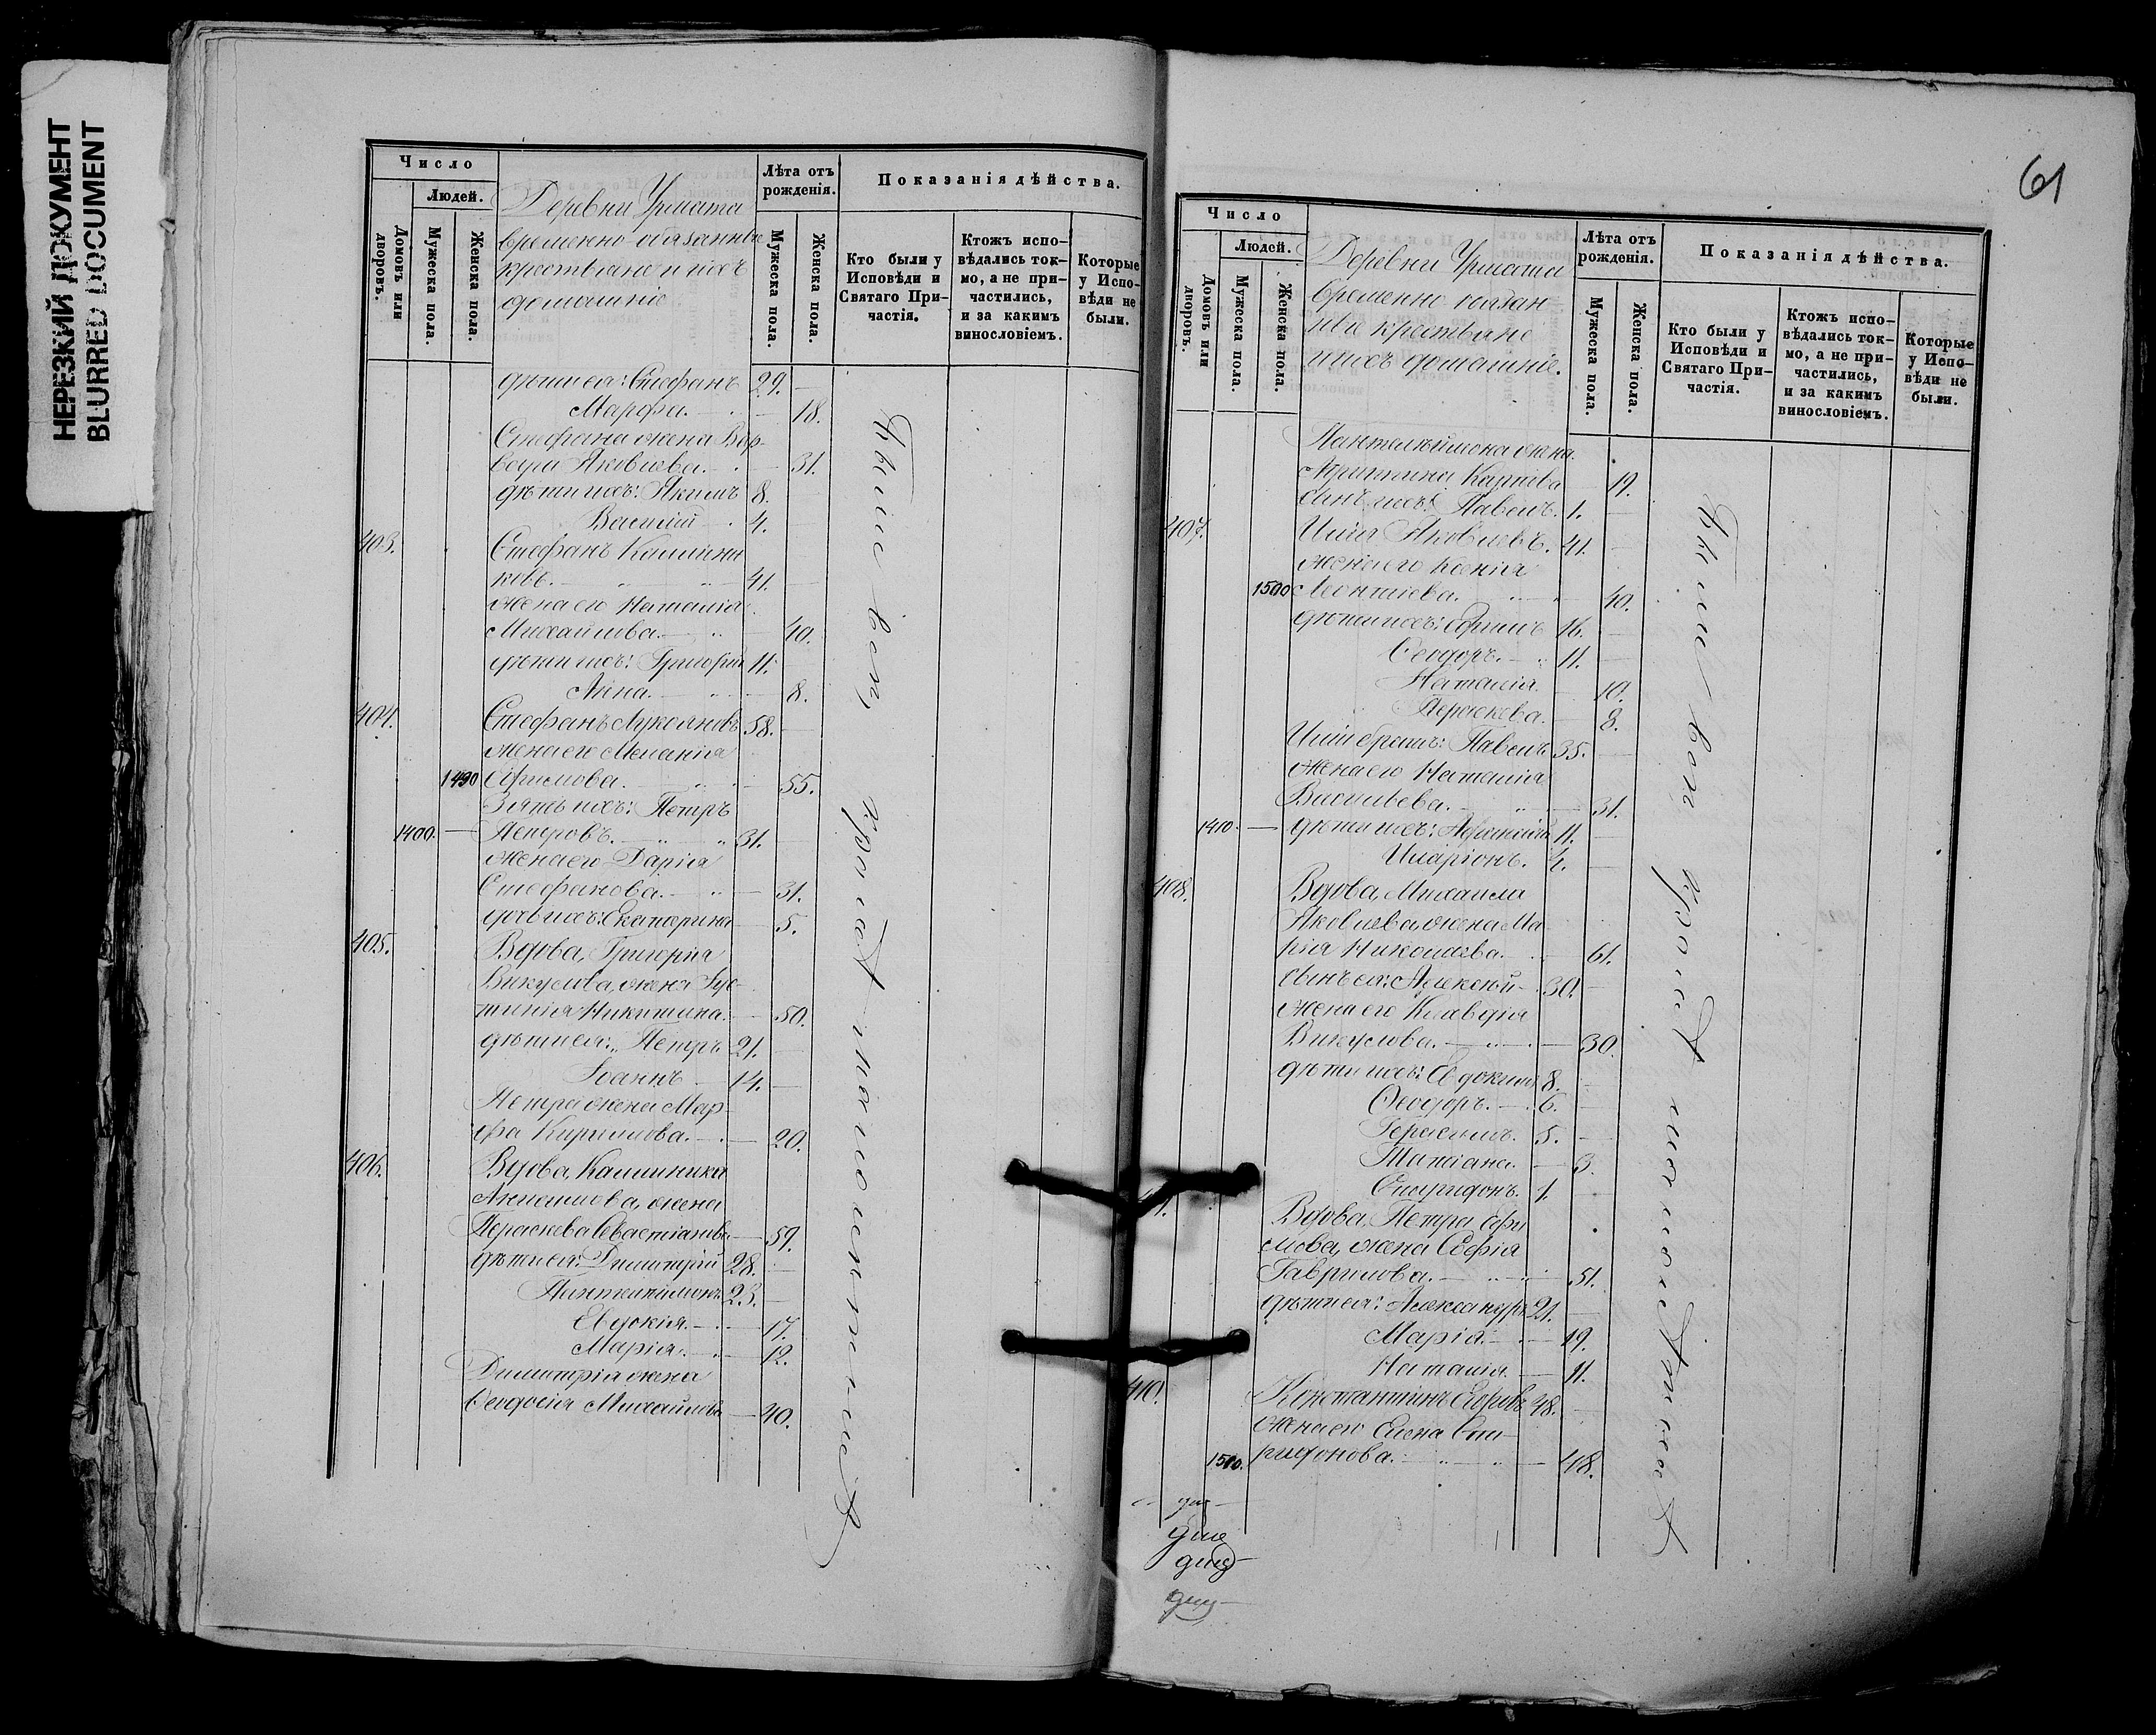 НЕРЕЗКИЙ ДОКУМЕНТ
BLURRED DOCUMENT
Число
Людей.
Домовъ или дворовъ.
Мужеска пола.
Женска пола.
Деревни
временно-обязанные
крестьяне и ихъ
домашніе
Лѣта отъ рожденія.
Мужеска пола.
Женска пола.
Показанія дѣйства.
Кто были у Исповѣди и Святаго Причастія.
Ктожъ исповѣдались токмо, а не причастились, и за какимъ винословіемъ.
Которые у Исповѣди не были.
дѣти ея: Стефанъ 29.
Марфа. 18.
Стефана жена Вар-
вара Яковлева. 31.
дѣти ихъ: Якимъ 8.
Василій 4.
403. Стефанъ Калинни-
ковъ. 41.
жена его Наталія
Михайлова. 40.
дѣти ихъ: Григорій 11.
Анна. 8.
404. Стефанъ Лукояновъ 58.
жена его Меланія
1490 Ефимова. 55.
Зять ихъ: Петръ
1400. Петровъ. 31.
жена его Дарія
Стефанова. 31.
дочь ихъ: Екатерина 5.
405. Вдова, Григорія
Викулова, жена Іус-
тинія Никитина. 50.
дѣти ея: Петръ 21.
Іоаннъ 14.
Петра жена Мар-
фа Кирилова. 20.
406. Вдова, Калинника
жена
Параскева Севастіанова 59.
дѣти ея: Димитрій 28.
Пантелеймонъ 23.
Евдокія. 17.
Марія. 12.
Димитрія жена
Ѳеодосія Михайлова 40.
61
Число
Людей.
Домовъ или дворовъ.
Мужеска пола.
Женска пола.
Деревни
временно обязан-
ные крестьяне
и ихъ домашніе.
Лѣта отъ рожденія.
Мужеска пола.
Женска пола.
Показанія дѣйства.
Кто были у Исповѣди и Святаго Причастія.
Ктожъ исповѣдались токмо, а не причастились, и за какимъ винословіемъ.
Которые у Исповѣди не были.
Пантелеймона жена
Карпова 19.
сынъ ихъ: Павелъ. 1.
407. Илія Яковлевъ. 41.
жена его Ксенія
1500 Леонтіева. 40.
дѣти ихъ: Ефимъ 16.
Ѳеодоръ. 11.
Наталія. 10.
Параскева. 8.
Иліи братъ: Павелъ 35.
жена его Наталія
Васильева. 31.
1410. дѣти ихъ: Афанасій 11.
Иларіонъ. 4.
408. Вдова, Михаила
Яковлева, жена Ма-
рія Николаева. 61.
сынъ ея: Алексѣй 30.
жена его Клавдія
Викулова. 30.
дѣти ихъ: Евдокимъ 8.
Ѳеодоръ. 6.
Герасимъ. 5.
Татіана. 3.
Спиридонъ. 1.
Вдова, Петра Ефи-
мова, жена Софія
Гаврилова. 51.
дѣти ея: Александръ 21.
Марія. 19.
Наталія. 11.
410. Константинъ 48.
жена его Елена Спи-
ридонова. 48.
1510.